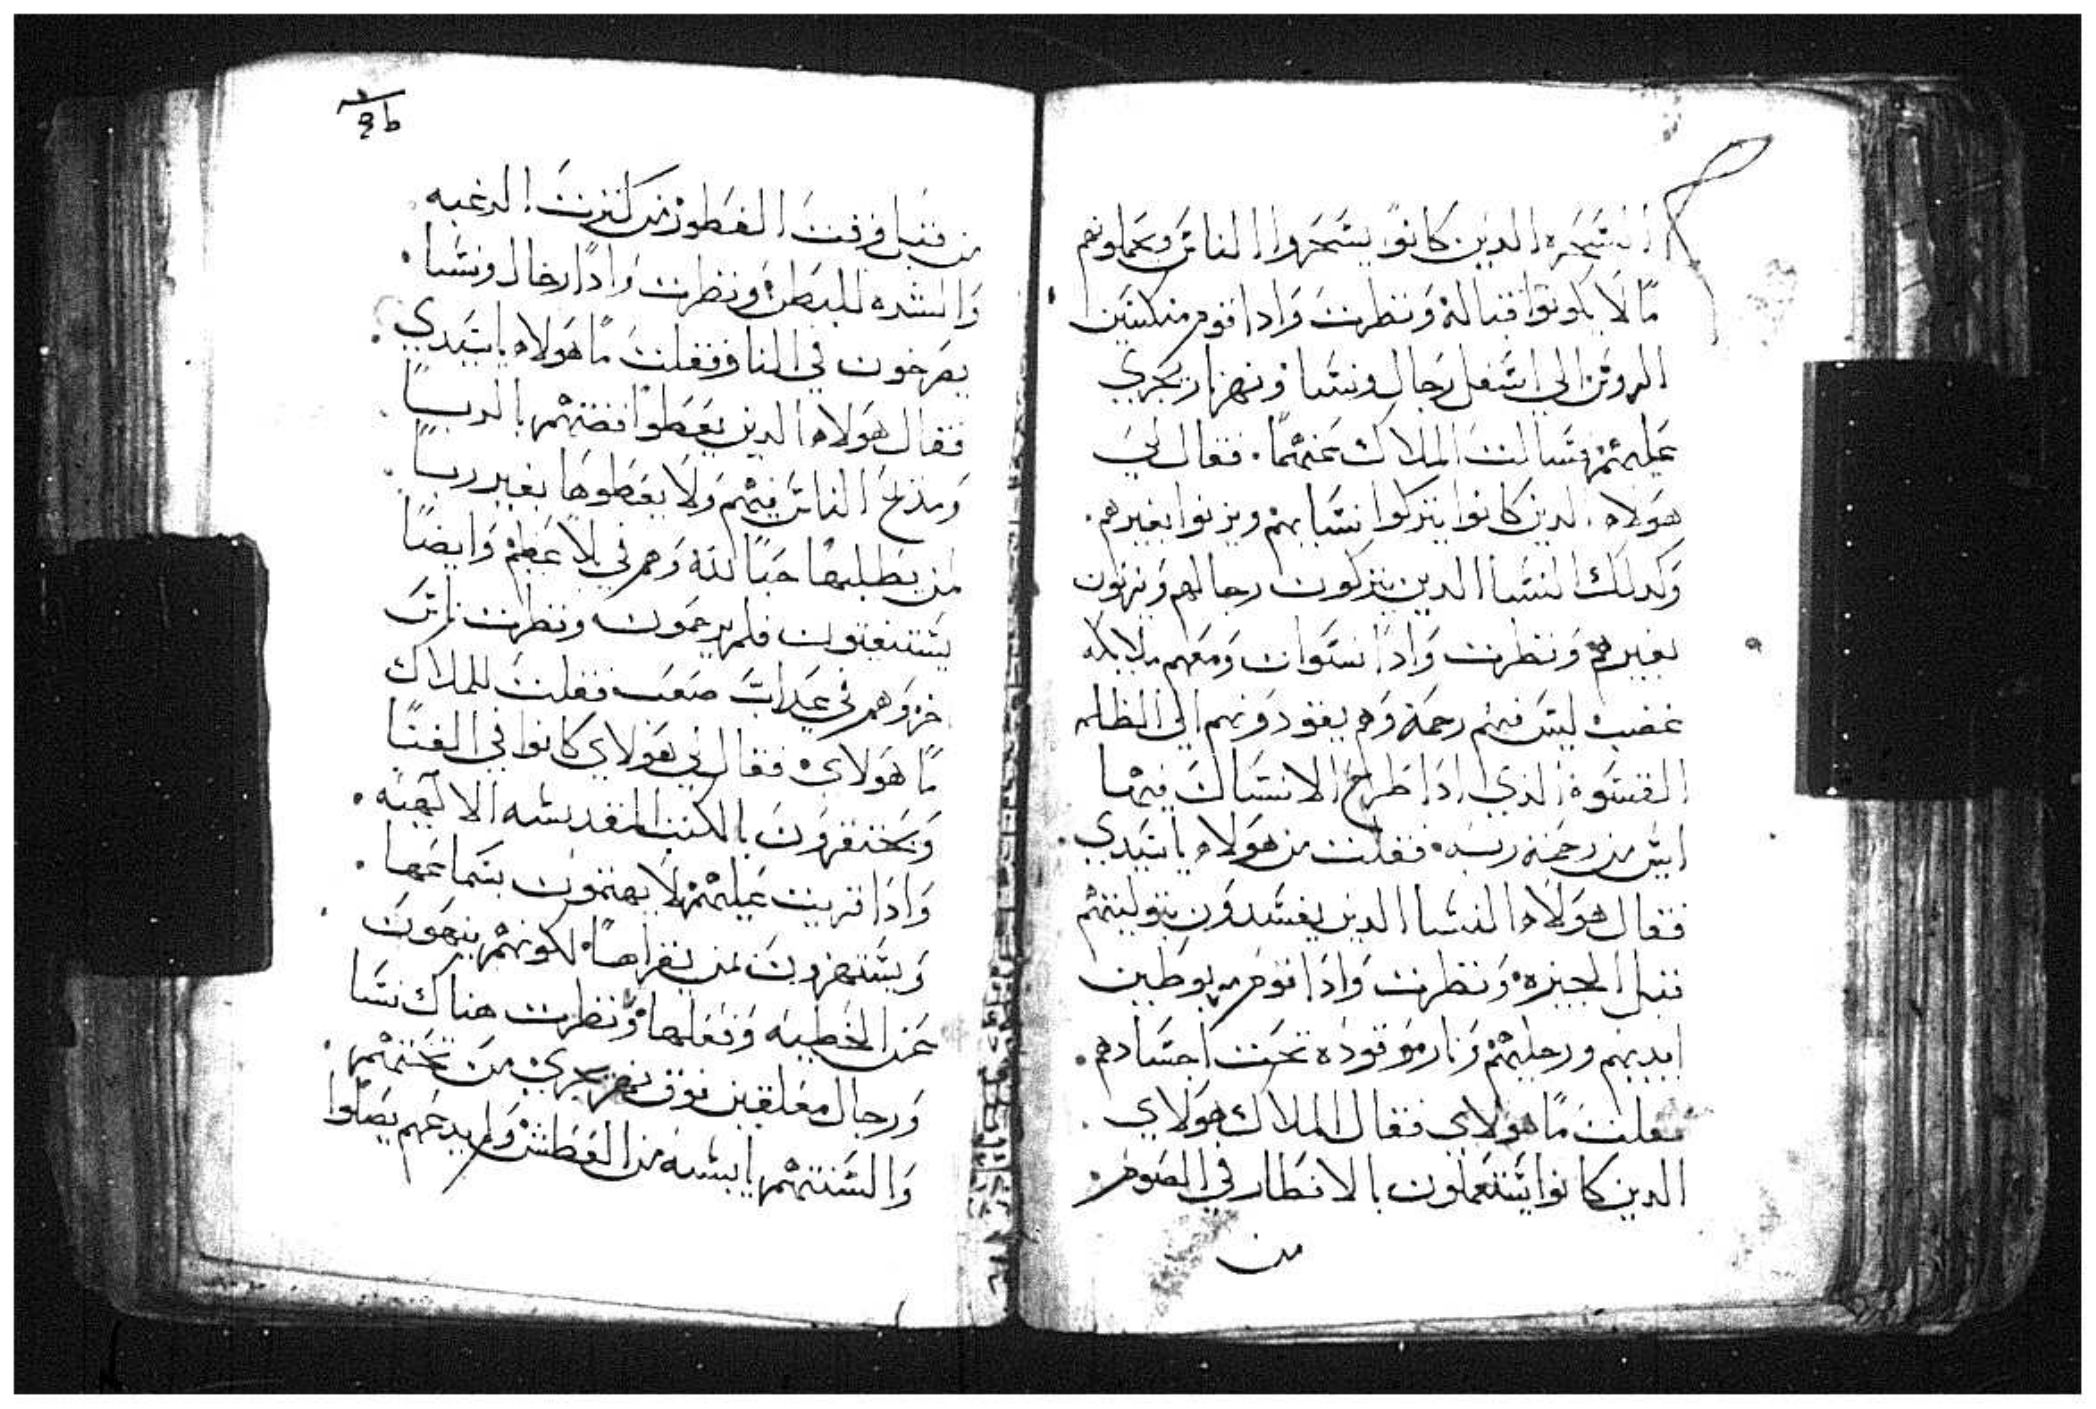 السحره الدين كانوا يسحروا الناس ويعملونهم
ما لا يكونوا قبالته ونظرت وادا قوم منكسين
الروس الي اسفل رجال ونسا ونهر نار يجري
عليهم فسالت الملاك عنهما. فقال لي
هولاه الدين كانوا يتركوا نسايهم ويزنوا بغيرهم.
وكدلك النسا الدين يتركون رجالهم ويزنون
بغيرهم ونظرت وادا نسوان ومعهم ملايكه
غضب ليس فيهم رحمة وهم يقودونهم الي الظلمه
القسوة الذي ادا طرح الانسان فيها
ايس من رحمة ربه فقلت من هولاه ياسيدي.
فقال هولاه النسا الدين يفسدون بتوليتهم
قبل الجيزه ونظرت وادا قوم مربوطين
ايديهم ورجليهم ونار موقوده تحت اجسادهم.
فقلت ما هولاي فقال الملاك هولاي
الدين كانوا يستعملون بالافطار في الصوم.
من
من قبل وقت الفطور من كترت الرغبه
والشره للبطن ونظرت وادا رجال ونسا.
يصرخون في النار فقلت ما هولاه ياسيدي.
فقال هولاه الدين يعطوا فضتهم بالربا
ومدح الناس فيهم ولا يعطوها بغير ربا
لمن يطلبها حبا لله وهم في بلا عظم وايضا
يستغيتون فلم يرحمون ونظرت ناس
اخر وهم في عداب صعب فقلت للملاك
ما هولاي فقال لي هولاي كانوا في الغنا
ويحتقرون بالكتب المقدسه الالهيه.
وادا قريت عليهم لا يهتمون بسماعها.
ويستهزون بمن يقراها لكونهم ينهون
عن الخطيه وفعلها ونظرت هناك نسا
ورجال معلقين فوق نهر يجري من تحتهم.
والسنتهم يابسه من العطش ولم يدعهم يصلوا